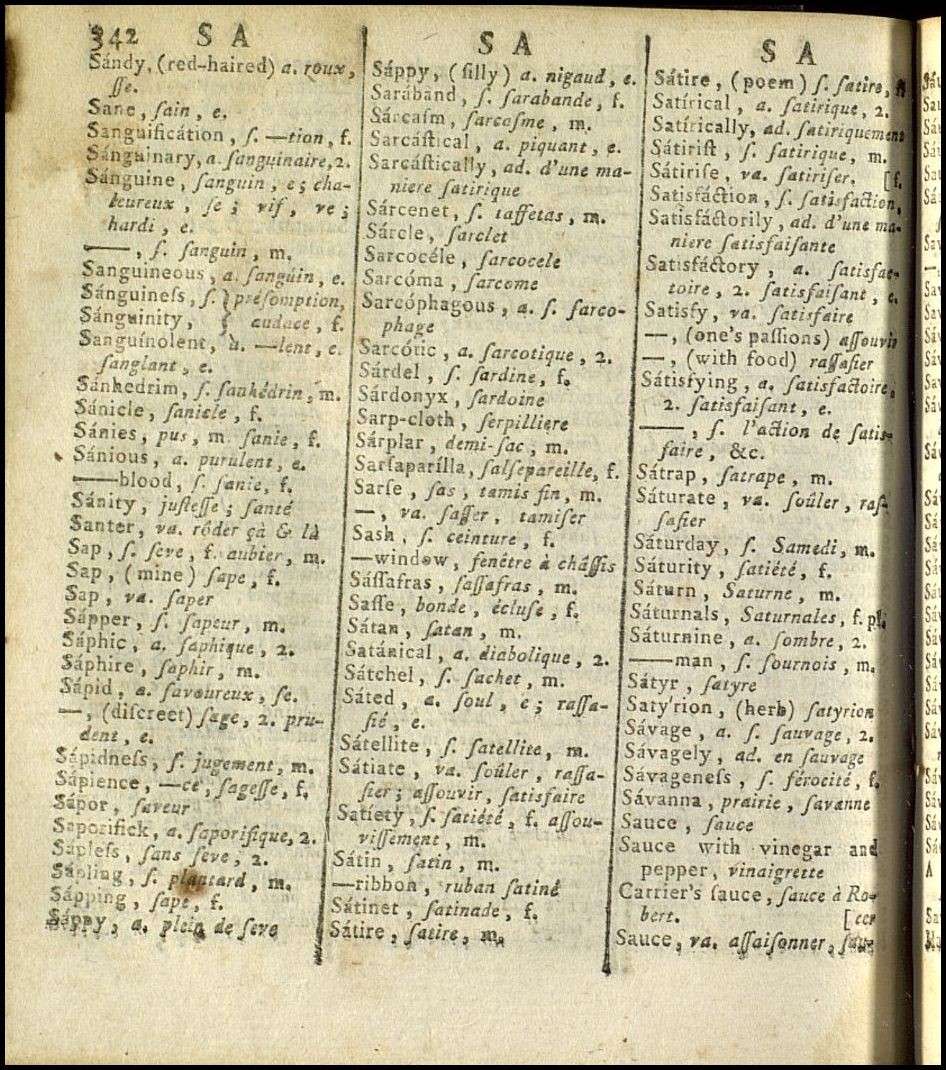 342 S A
Sándy, (red-haired) a. roux,
ſſe.
Sane, ſain, e.
Sanguificátion, ſ. —tion, f.
Sánguinary, a. ſanguinaire, 2.
Sánguine, ſanguin, e; cha-
leureux, ſe; vif, ve;
hardi, e.
——, ſ. ſanguin, m.
Sanguíneous, a. ſanguin, e.
Sánguineſs, ſ. } préſomption,
Sánguinity, } audace, f.
Sanguínolent, a. —lent, e.
ſanglant, e.
Sánhedrim, ſ. ſanhédrin, m.
Sánicle, ſanicle, f.
Sánies, pus, m. ſanie, f.
Sánious, a. purulent, e.
——blood, ſ. ſanie, f.
Sánity, juſteſſe; ſanté
Santer, va. rôder çà & là
Sap, ſ. ſeve, f. aubier, m.
Sap, (mine) ſape, f.
Sap, va. ſaper
Sápper, ſ. ſapeur, m.
Sáphic, a. ſaphique, 2.
Sáphire, ſaphir, m.
Sápid, a. ſavoureux, ſe.
—, (diſcreet) ſage, 2. pru-
dent, e.
Sápidneſs, ſ. jugement, m.
Sápience, —ce, ſageſſe, f.
Sápor, ſaveur
Saporifick, a. ſaporifique, 2.
Sápleſs, ſans ſeve, 2.
Sápling, ſ. plantard, m.
Sápping, ſape, f.
Sáppy, a. plein de ſeve
S A
Sáppy, (ſilly) a. nigaud, e.
Sarábànd, ſ. ſarabande, f.
Sárcaſm, ſarcaſme, m.
Sarcáſtical, a. piquant, e.
Sarcáſtically, ad. d'une ma-
niere ſatirique
Sárcenet, ſ. taffetas, m.
Sárcle, ſarclet
Sarcocéle, ſarcocele
Sarcóma, ſarcome
Sarcóphagous, a. ſ. ſarco-
phage
Sarcótic, a. ſarcotique, 2.
Sárdel, ſ. ſardine, f.
Sárdonyx, ſardoine
Sarp-cloth, ſerpilliere
Sárplar, demi-ſac, m.
Sarſaparílla, ſalſepareille, f.
Sarſe, ſas, tamis fin, m.
—, va. ſaſſer, tamiſer
Sash, ſ. ceinture, f.
—window, fenêtre à châſſis
Sáſſafras, ſaſſafras, m.
Saſſe, bonde, écluſe, f.
Sátan, ſatan, m.
Satánical, a. diabolique, 2.
Sátchel, ſ. ſachet, m.
Sáted, a. ſoul, e; raſſa-
ſié, e.
Sátellite, ſ. ſatellite, m.
Sátiate, va. ſoûler, raſſa-
ſier; aſſouvir, ſatisfaire
Satíety, ſ. ſatiété, f. aſſou-
viſſement, m.
Sátin, ſatin, m.
—ribbon, ruban ſatiné
Sátinet, ſatinade, f.
Sátire, ſatire, m.
S A
Sátire, (poem) ſ. ſatire,
Satírical, a. ſatirique, 2.
Satírically, ad. ſatiriquement
Sátiriſt, ſ. ſatirique, m.
Sátiriſe, va. ſatiriſer. [f.
Satisfáction, ſ. ſatisfaction,
Satisfáctorily, ad. d'une ma-
niere ſatisfaiſante
Satisfáctory, a. ſatisfac-
toire, 2. ſatisfaiſant, e.
Satisfy, va. ſatisfaire
—, (one's paſſions) aſſouvir
—, (with food) raſſaſier
Sátisfying, a. ſatisfactoire,
2. ſatisfaiſant, e.
——, ſ. l'action de ſatis-
faire, &c.
Sátrap, ſatrape, m.
Sáturate, va. ſoûler, raſ-
ſaſier
Sáturday, ſ. Samedi, m.
Sáturity, ſatiété, f.
Sáturn, Saturne, m.
Sáturnals, Saturnales, f. pl.
Sáturnine, a. ſombre, 2.
——man, ſ. ſournois, m.
Sátyr, ſatyre
Saty'rion, (herb) ſatyrion
Sávage, a. ſ. ſauvage, 2.
Sávagely, ad. en ſauvage
Sávageneſs, ſ. férocité, f.
Sávanna, prairie, ſavanne
Sauce, ſauce
Sauce with vinegar and
pepper, vinaigrette
Carrier's ſauce, ſauce à Ro-
bert. [cer
Sauce, va. aſſaiſonner, ſau-